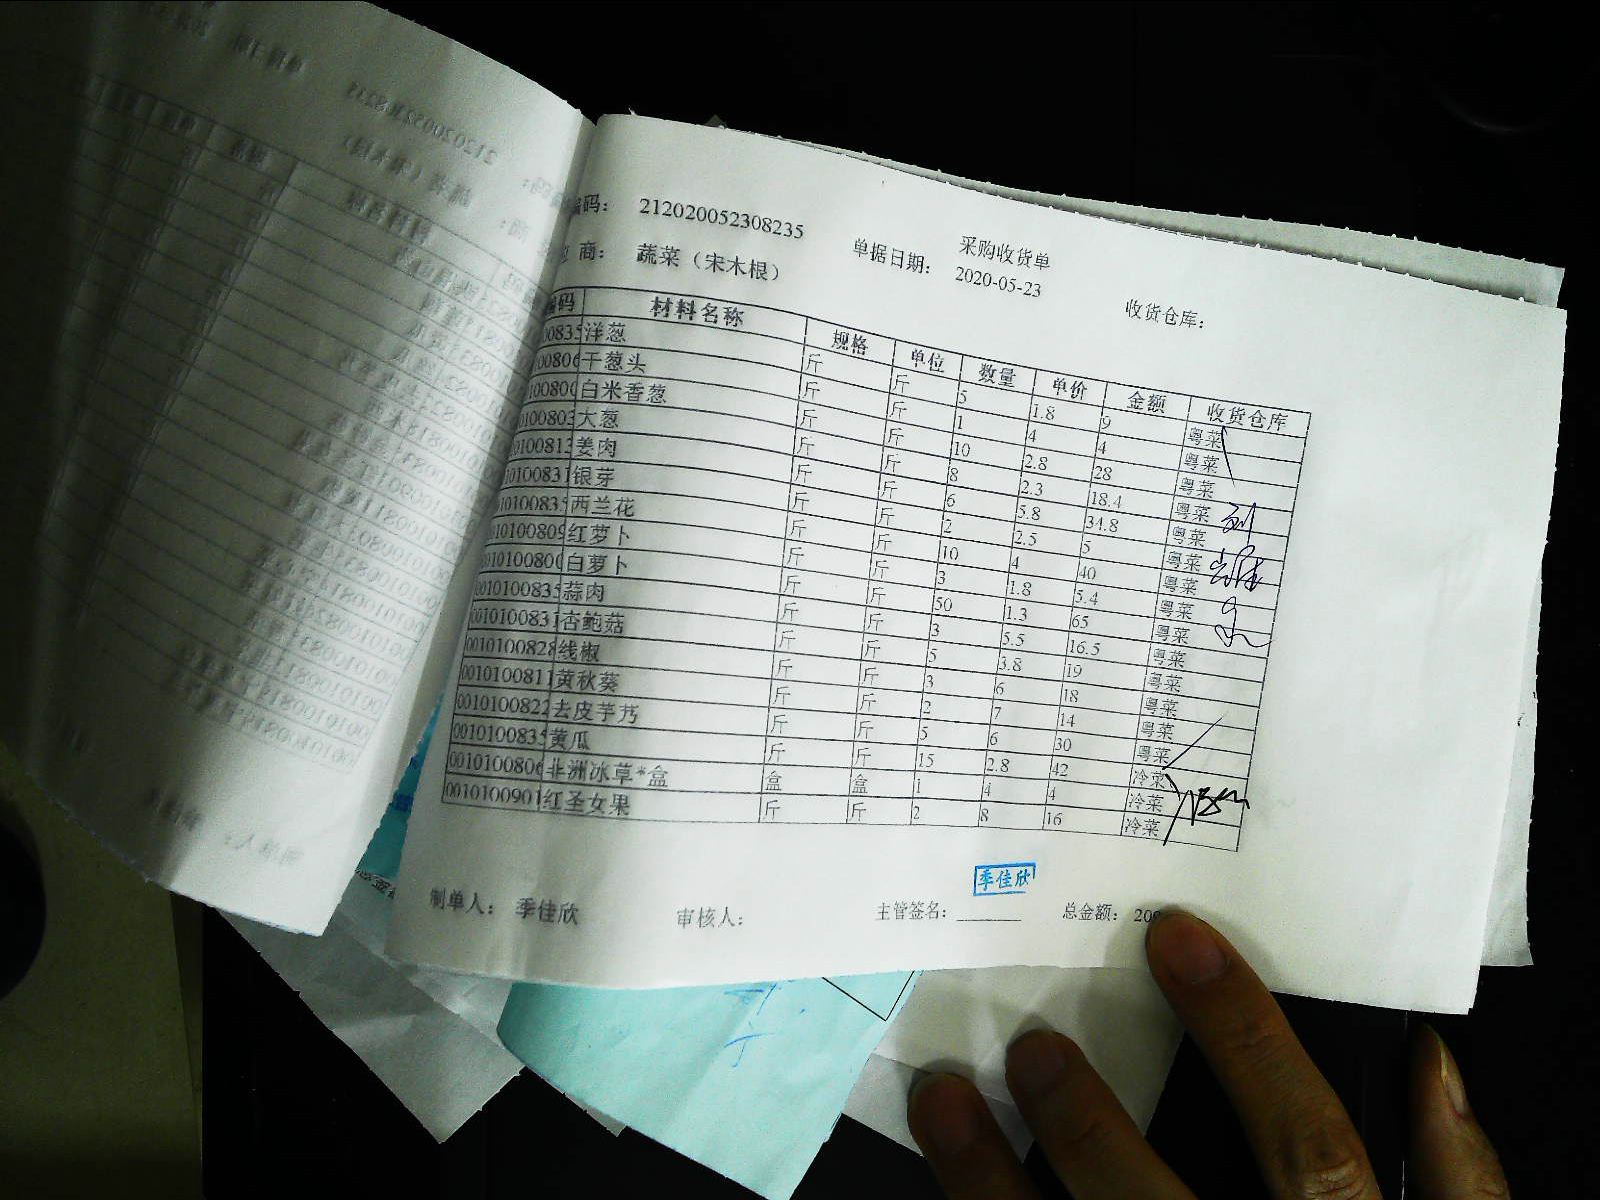 采购收货单
编码： 212020052308235 单据日期： 2020-05-23 收货仓库：
商： 蔬菜（宋木根）
编码 材料名称 规格 单位 数量 单价 金额 收货仓库
00835 洋葱 斤 斤 5 1.8 9 粤菜
00806 干葱头 斤 斤 1 4 4 粤菜
100800 白米香葱 斤 斤 10 2.8 28 粤菜
0100803 大葱 斤 斤 8 2.3 18.4 粤菜
0100813 姜肉 斤 斤 6 5.8 34.8 粤菜
10100831 银芽 斤 斤 2 2.5 5 粤菜
010100835 西兰花 斤 斤 10 4 40 粤菜
010100809 红萝卜 斤 斤 3 1.8 5.4 粤菜
0010100800 白萝卜 斤 斤 50 1.3 65 粤菜
0010100835 蒜肉 斤 斤 3 5.5 16.5 粤菜
0010100831 杏鲍菇 斤 斤 5 3.8 19 粤菜
0010100828 线椒 斤 斤 3 6 18 粤菜
0010100811 黄秋葵 斤 斤 2 7 14 粤菜
0010100822 去皮芋艿 斤 斤 5 6 30 粤菜
0010100835 黄瓜 斤 斤 15 2.8 42 冷菜
0010100806 非洲冰草*盒 盒 盒 1 4 4 冷菜
0010100901 红圣女果 斤 斤 2 8 16 冷菜
季佳欣
制单人： 季佳欣 审核人： 主管签名： 总金额：